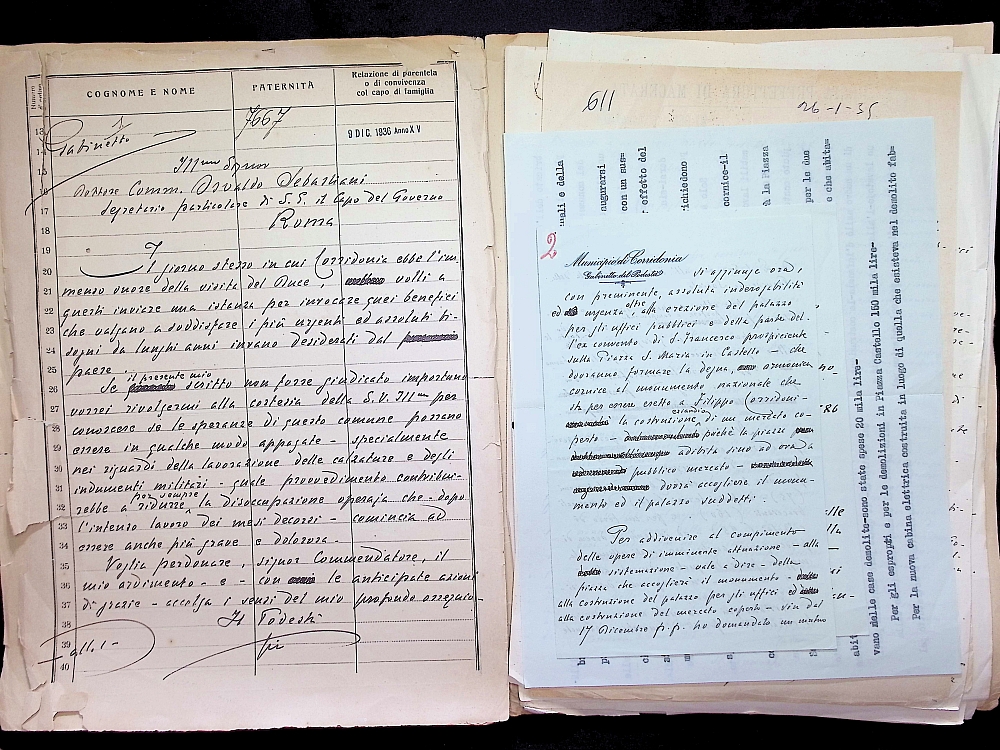 Numero d'ordine
COGNOME E NOME
PATERNITÀ
Relazione di parentela
o di convivenza
col capo di famiglia
13
14
15
16
17
18
19
20
21
22
23
24
25
26
27
28
29
30
31
32
33
34
35
36
37
38
39
40
1
Gabinetto
7667
9 DIC. 1936 Anno XV
Ill.mo Signor
Dottore Comm. Osvaldo Sebastiani
Segretario particolare di S.E. il Capo del Governo
Roma
Il giorno stesso in cui Corridonia ebbe l'im-
menso onore della visita del Duce, volli a
questi inviare una istanza per invocare quei benefici
che valgano a soddisfare i più urgenti ed assoluti bi-
sogni da lunghi anni invano desiderati dal
paese.
Se il presente mio scritto non fosse giudicato importuno
vorrei rivolgermi alla cortesia della S.V. Ill.ma per
conoscere se le speranze di questo comune possano
essere in qualche modo appagate - specialmente
nei riguardi della lavorazione delle calzature e degli
indumenti militari - quale provvedimento contribui-
rebbe a ridurre per sempre la disoccupazione operaja che - dopo
l'intenso lavoro dei mesi decorsi - comincia ad
essere anche più grave e dolorosa.
Voglia perdonare, signor Commendatore, il
mio ardimento - e - con le anticipate azioni
di grazie - accolga i sensi del mio profondo ossequio -
Il Podestà
all. 1
611
26-1-35
uali e della
augurarsi
con un sus=
effetto del
richiedono
cornice-il
à la Piazza
per le due
e che abita=
2
Municipio di Corridonia
Gabinetto del Podestà
Si aggiunge ora,
con preminente, assoluta inderogabilità
ed urgenza, oltre alla erezione del palazzo
per gli uffici pubblici e della parte del-
l'ex convento di S. Francesco prospiciente
sulla Piazza S. Maria in Castello - che
dovranno formare la degna, armonica
cornice al monumento nazionale che
sta per essere eretto a Filippo Corridoni -
la costruzione eziandio di un mercato co-
perto - poichè la piazza
adibita sino ad ora a
pubblico mercato -
dovrà accogliere il monu-
mento ed il palazzo suddetti.
Per addivenire al compimento
delle opere di imminente attuazione - alla
sistemazione - vale a dire - della
piazza che accoglierà il monumento -
alla costruzione del palazzo per gli uffici ed
alla costruzione del mercato coperto - sin dal
17 Dicembre p.p. ho domandato un mutuo
abit
vano nelle case demolite-sono state spese 20 mila lire-
Per gli espropri e per le demolizioni in Piazza Castello 150 mila lire-
Per la nuova cabina elettrica costruita in luogo di quella che esisteva nel demolito fab=